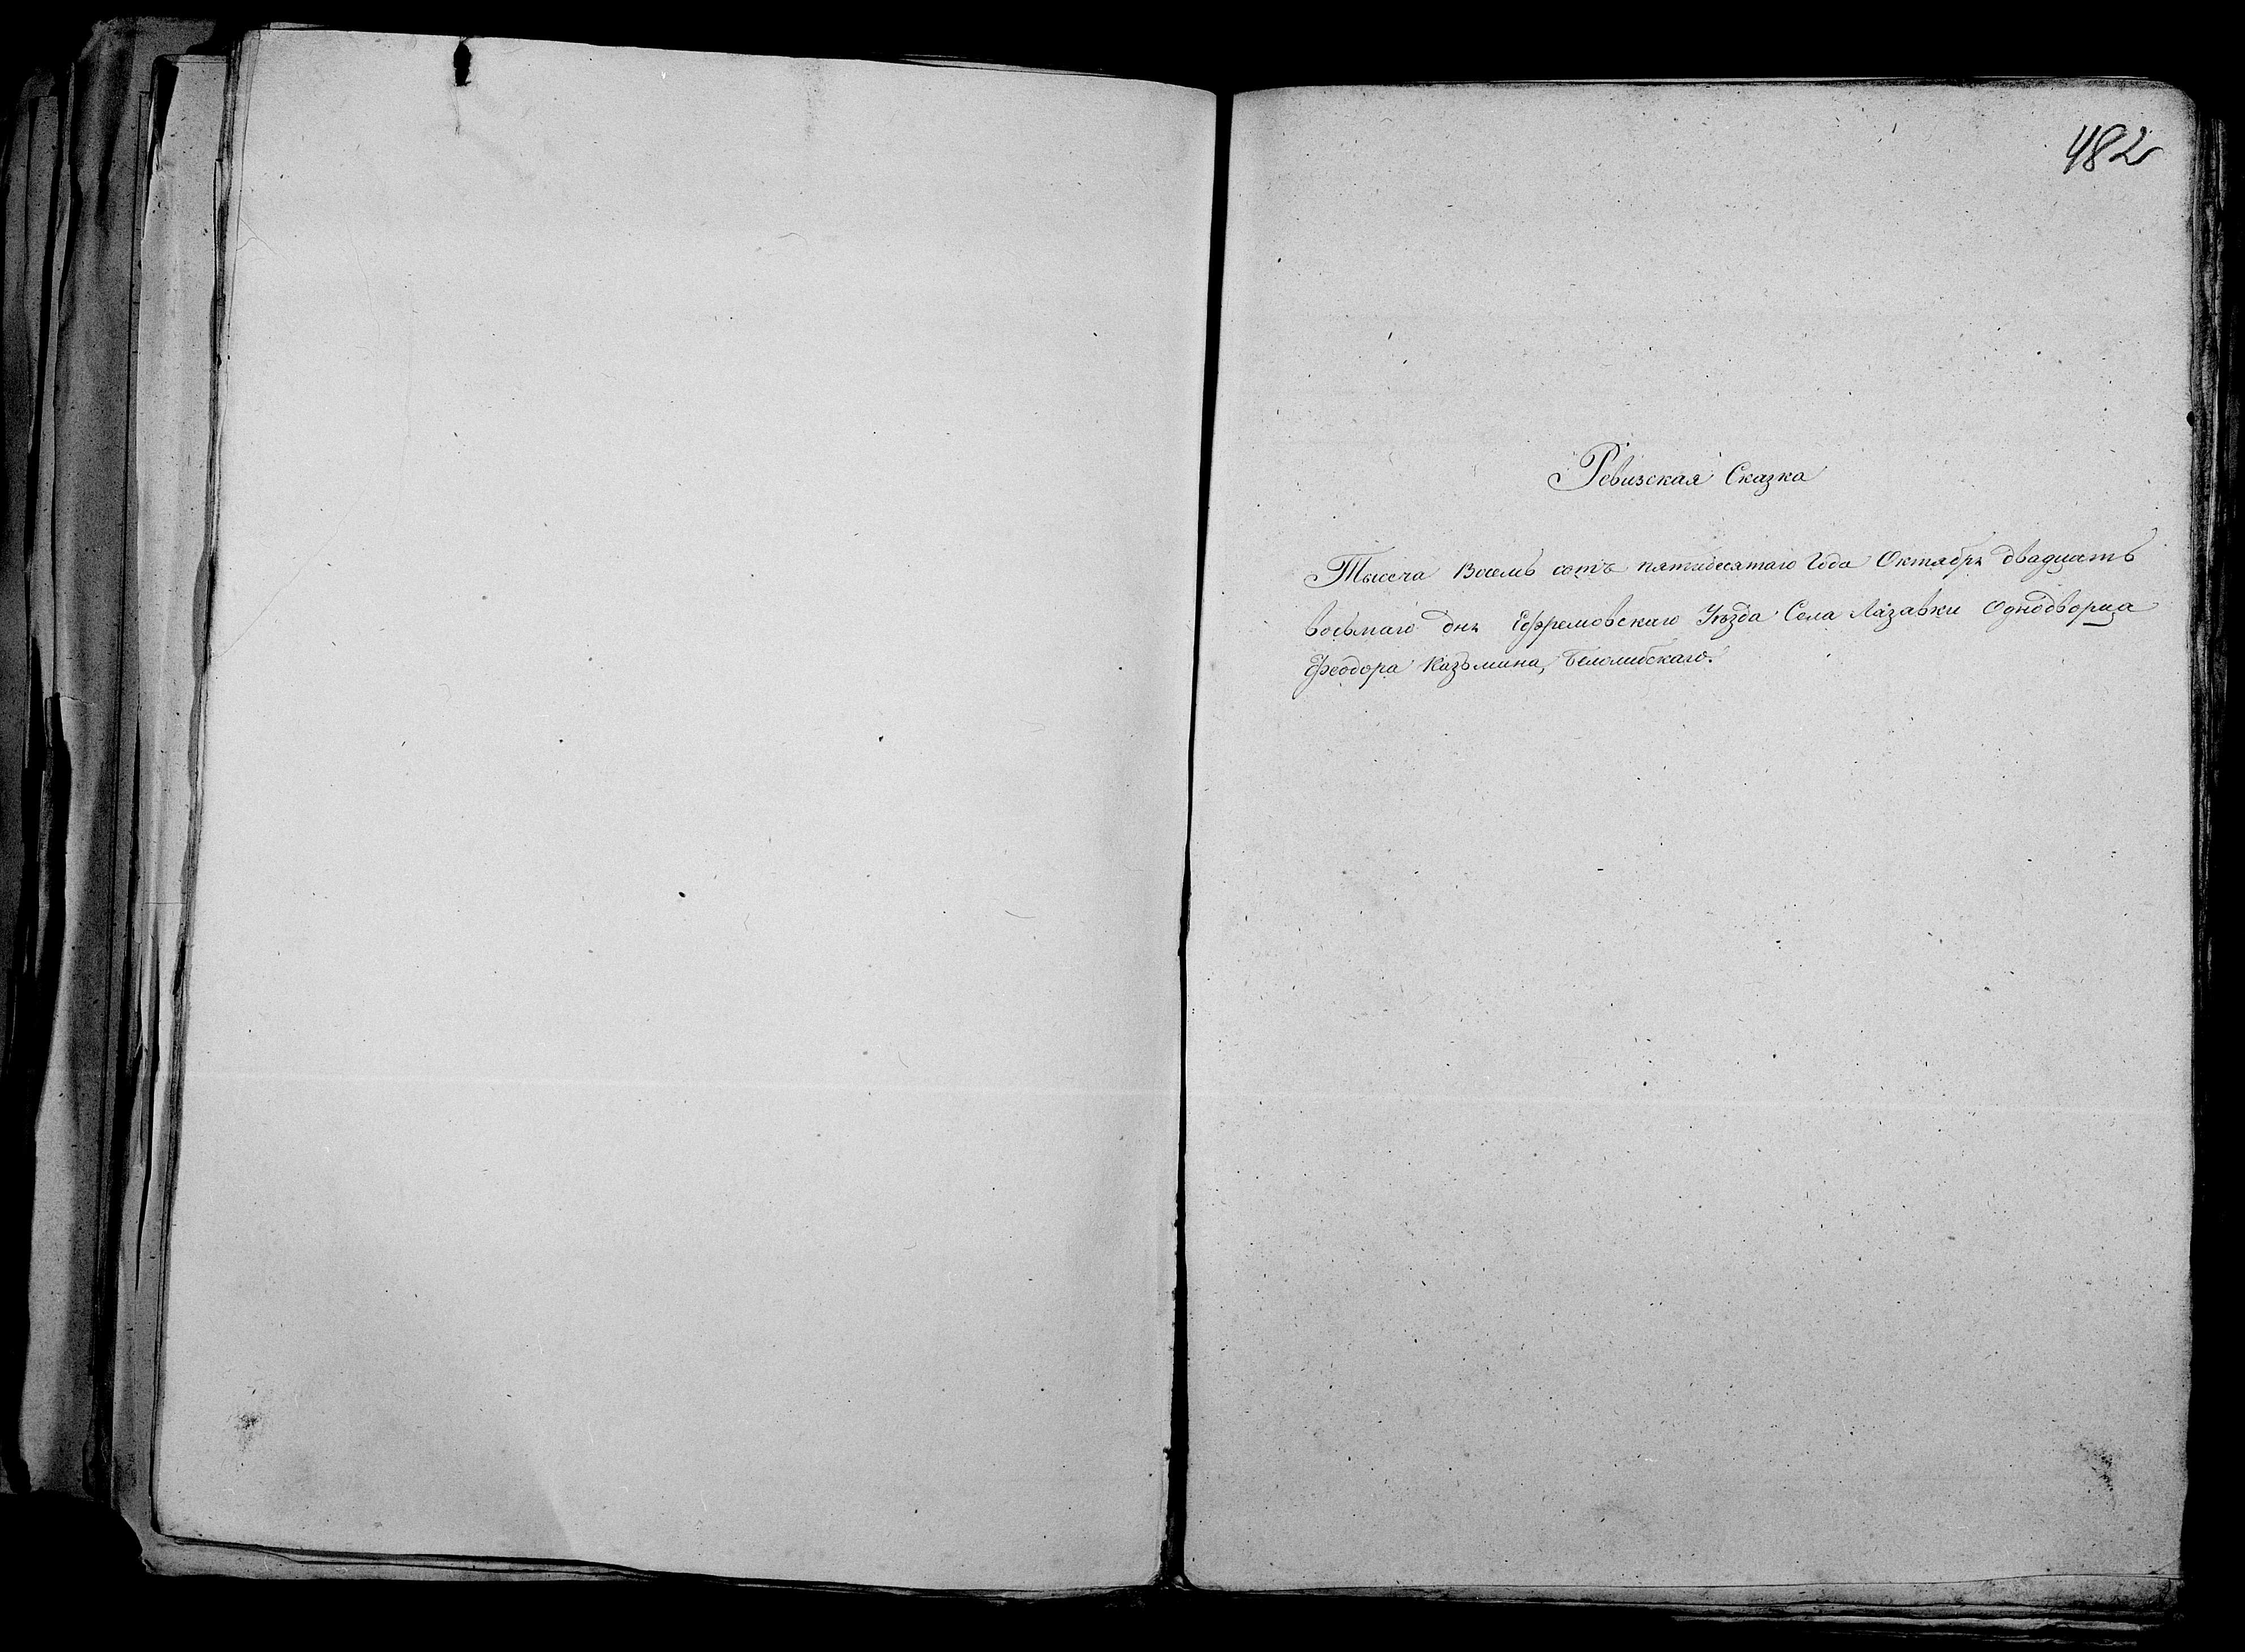 482
Ревизская Сказка
Тысеча Восемь сотъ пятидесятаго Года Октября двадцать
восьмаго дня Ефремовскаго Уезда Села Лазавки Однодворца
Феодора Казьмина,